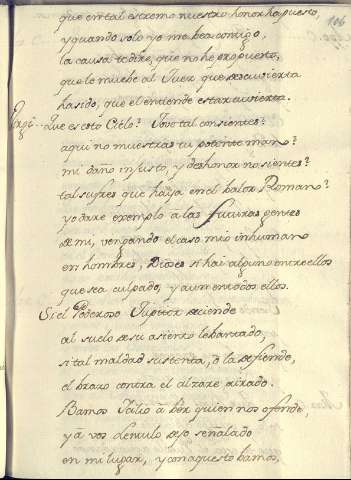 106
que en tal estremo nuestro honor ha puesto,
y quando solo yo me bea contigo,
la causa te dire, que no he propuesto,
que le muebe al Juez que descuvierta
ha sido, que el entiende estar cuvierta.
Virgi.. Que es esto Cielo? Jove tal consientes?
aqui no muestras tu potente mano?
mi daño injusto, y deshonor no sientes?
tal sufres que haya en el balor Romano?
yo dare exemplo a las futuras gentes
de mi, vengando el caso mio inhumano
en hombres, Dioses si hai alguno entre ellos
que sea culpado, y aun en todos ellos.
Si el Poderoso Jupiter deciende
al suelo de su asiento lebantado,
si tal maldad sustenta, o la defiende,
el brazo contra el alzare airado.
Bamos Icilio à bèr quien nos ofende,
y à vos dexo señalado
en mi lugar, y con aquesto bamos,